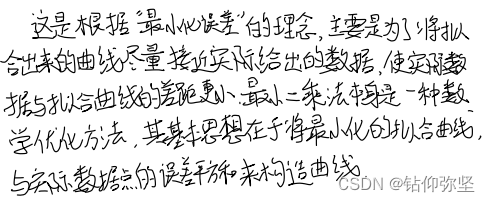 这是根据“最小化误差”的理念,主要是为了将拟
合出来的曲线尽量接近实际给出的数据,使实际数
据与拟合曲线的差距更小.最小二乘法本身是一种数
学优化方法,其基本思想在于将最小化的拟合曲线,
与实际数据点的误差平方和来构造曲线
CSDN @钻仰弥坚